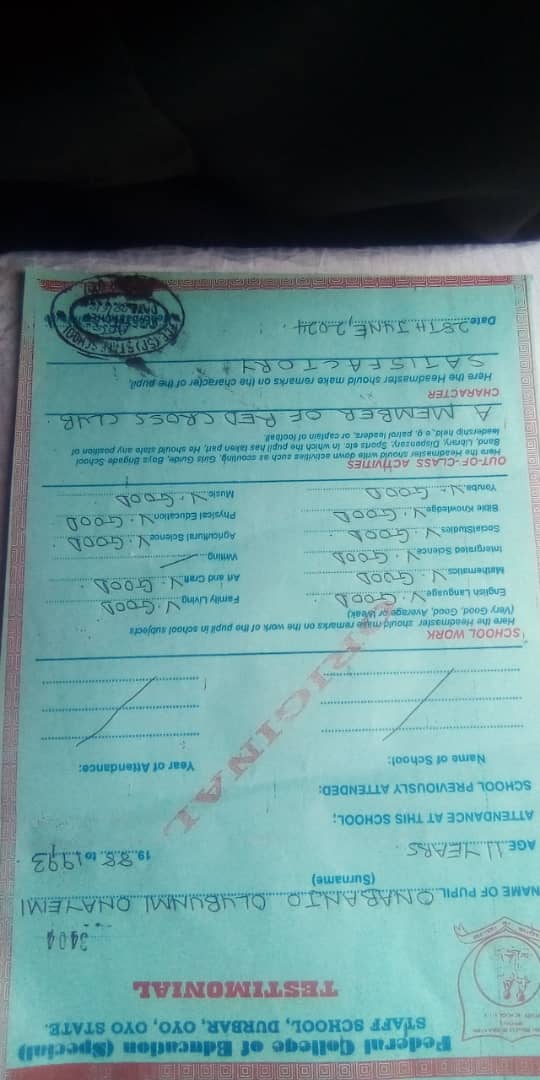 Federal College of Education (Special)
STAFF SCHOOL, DURBAR, OYO, OYO STATE.
TESTIMONIAL
3404
NAME OF PUPIL ONABANJO OLUBUNMI ONAYEMI
(Surname)
AGE 11 YEARS. 19 88 to 1993.
ATTENDANCE AT THIS SCHOOL;
SCHOOL PREVIOUSLY ATTENDED:
Name of School: Year of Attendance:
ORIGINAL
SCHOOL WORK
Here the Headmaster should make remarks on the work of the pupil in school subjects
(Very Good, Good, Average or Weak)
English Language V. GOOD Family Living V. GOOD
Mathematics V. GOOD Art and Craft V. GOOD
Intergrated Science V. GOOD Writing
SocialStudies V. GOOD Agricultural Science V. GOOD
Bible Knowledge V. GOOD Physical Education V. GOOD
Yoruba V. GOOD Music V. GOOD
OUT-OF-CLASS ACTIVITIES
Here the Headmaster should write down activities such as scouting, Girls Guide, Boys Brigade School
Band, Library, Dispensary, Sports etc. in which the pupil has taken part, He should state any position of
leadership held, e.g. patrol leaders, or captain of football.
A MEMBER OF RED CROSS CLUB.
CHARACTER
Here the Headmaster should make remarks on the character of the pupil.
SATISFACTORY
Date 28TH JUNE, 2024.
(SP) STAFF SCHOOL